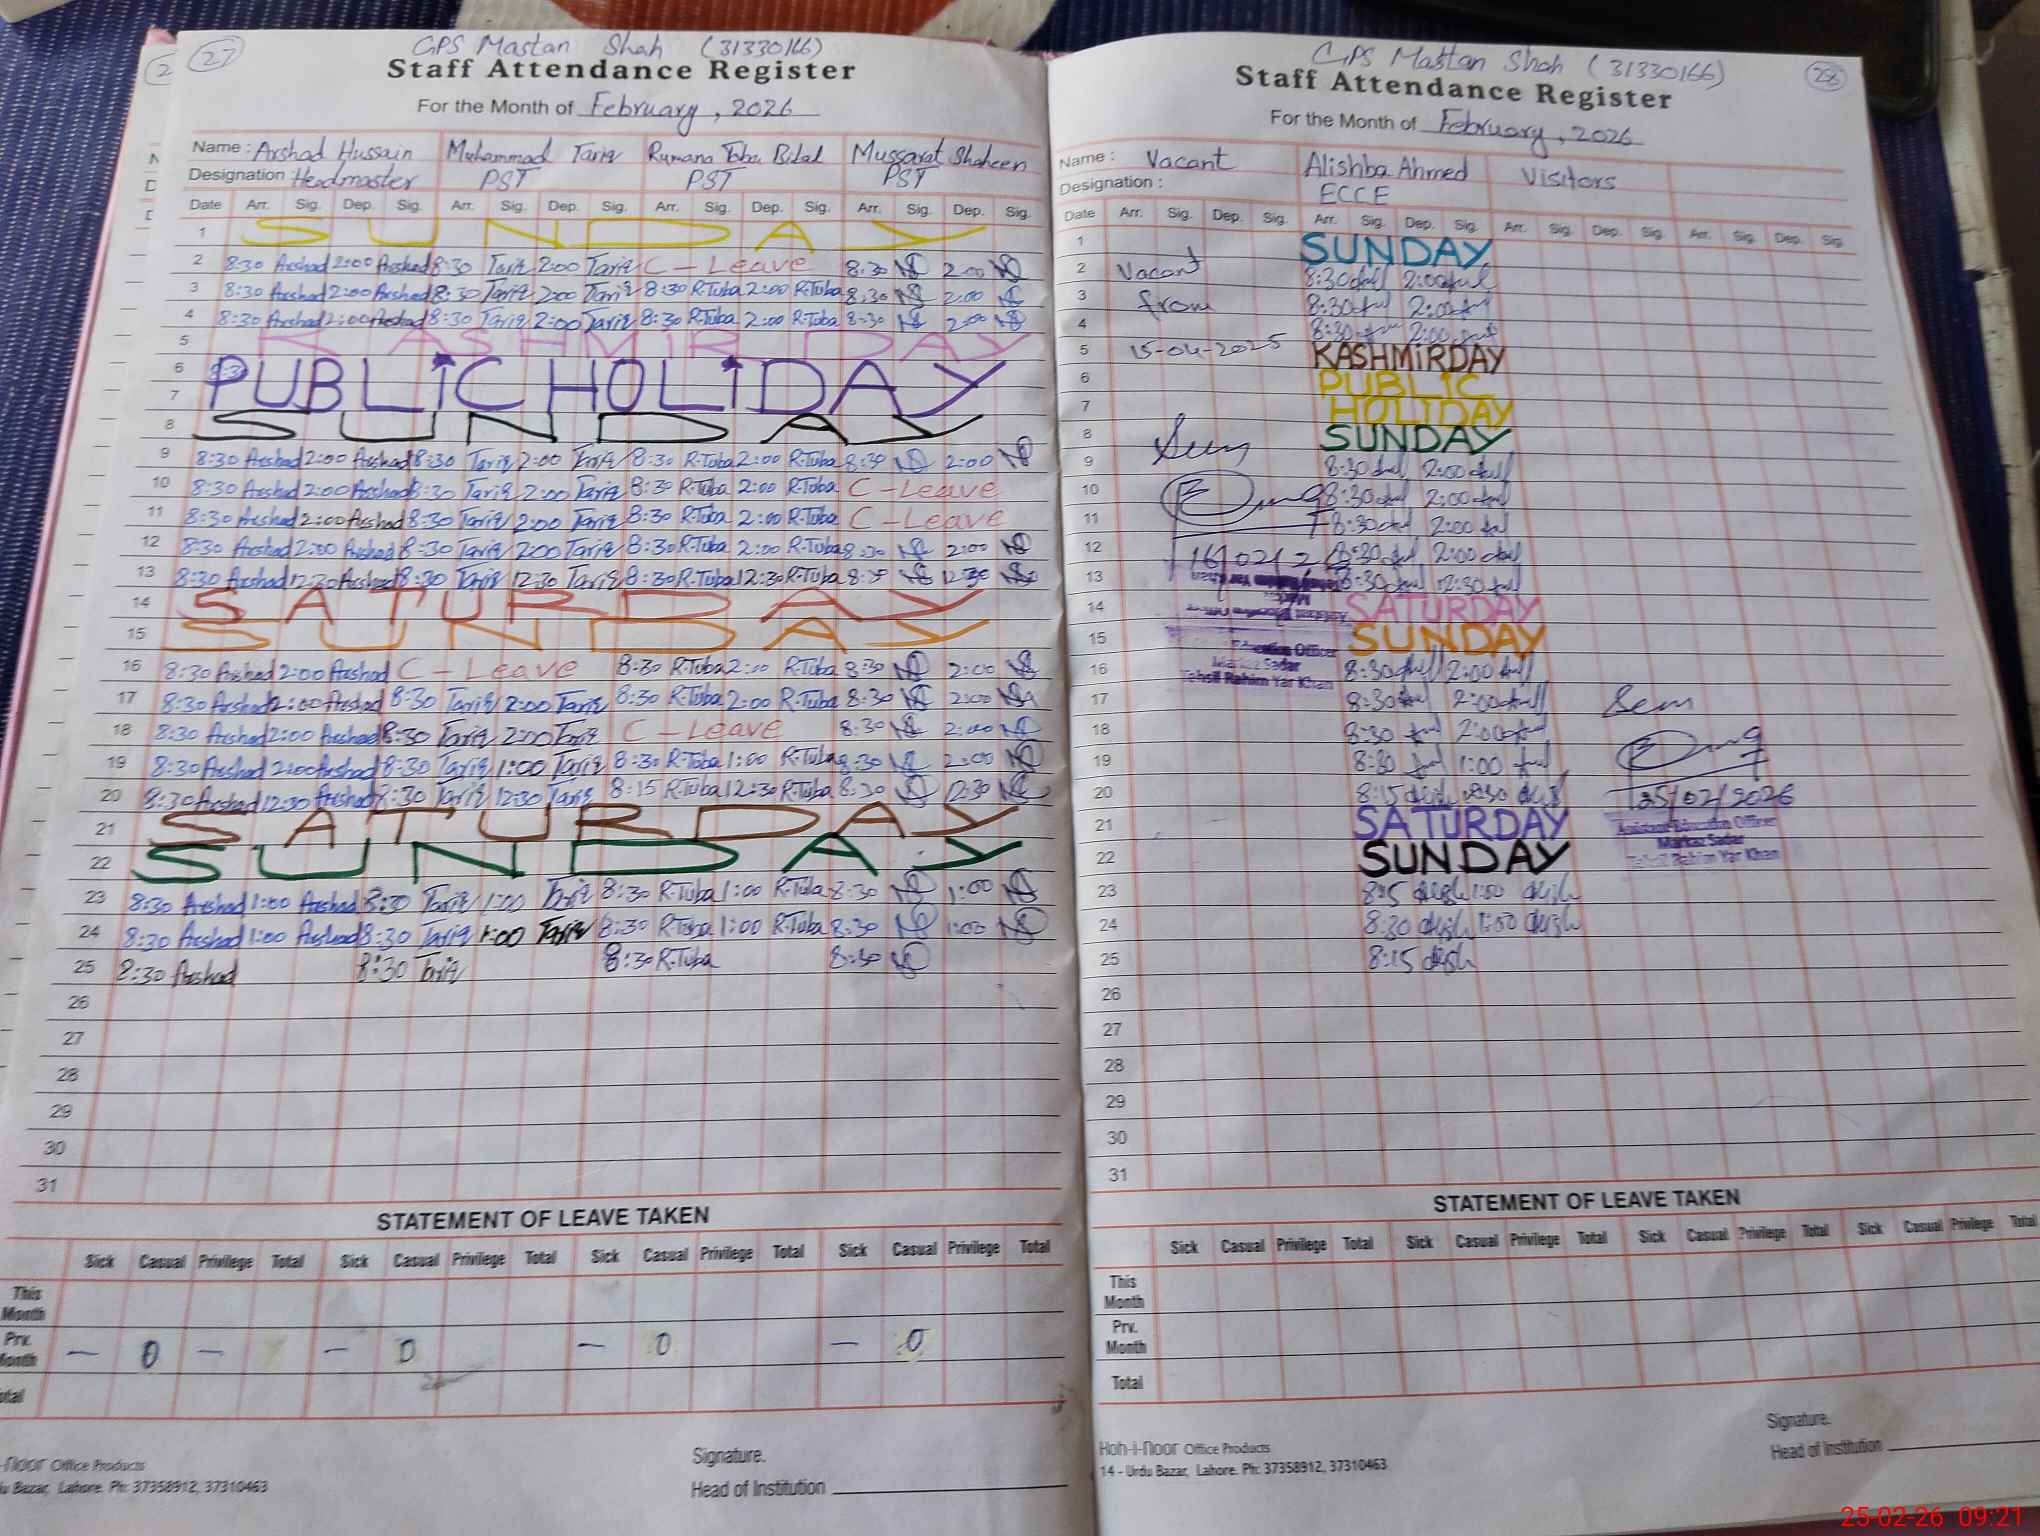 27
GPS Mastan Shah (31330166)
Staff Attendance Register
For the Month of February, 2026
Name : Arshad Hussain Muhammad Tariq Rumana Tuba Bilal Mussarat Shaheen
Designation : Headmaster PST PST PST
Date Arr. Sig. Dep. Sig. Arr. Sig. Dep. Sig. Arr. Sig. Dep. Sig. Arr. Sig. Dep. Sig.
1 SUNDAY
2 8:30 Arshad 2:00 Arshad 8:30 Tariq 2:00 Tariq C-Leave 8:30 2:00
3 8:30 Arshad 2:00 Arshad 8:30 Tariq 2:00 Tariq 8:30 R.Tuba 2:00 R.Tuba 8:30 2:00
4 8:30 Arshad 2:00 Arshad 8:30 Tariq 2:00 Tariq 8:30 R.Tuba 2:00 R.Tuba 8:30 2:00
5 KASHMIR DAY
6 PUBLiC HOLiDAY
7
8 SUNDAY
9 8:30 Arshad 2:00 Arshad 8:30 Tariq 2:00 Tariq 8:30 R.Tuba 2:00 R.Tuba 8:30 2:00
10 8:30 Arshad 2:00 Arshad 8:30 Tariq 2:00 Tariq 8:30 R.Tuba 2:00 R.Tuba C-Leave
11 8:30 Arshad 2:00 Arshad 8:30 Tariq 2:00 Tariq 8:30 R.Tuba 2:00 R.Tuba C-Leave
12 8:30 Arshad 2:00 Arshad 8:30 Tariq 2:00 Tariq 8:30 R.Tuba 2:00 R.Tuba 8:30 2:00
13 8:30 Arshad 12:30 Arshad 8:30 Tariq 12:30 Tariq 8:30 R.Tuba 12:30 R.Tuba 8:30 12:30
14 SATURDAY
15 SUNDAY
16 8:30 Arshad 2:00 Arshad C-Leave 8:30 R.Tuba 2:00 R.Tuba 8:30 2:00
17 8:30 Arshad 2:00 Arshad 8:30 Tariq 2:00 Tariq 8:30 R.Tuba 2:00 R.Tuba 8:30 2:00
18 8:30 Arshad 2:00 Arshad 8:30 Tariq 2:00 Tariq C-Leave 8:30 2:00
19 8:30 Arshad 2:00 Arshad 8:30 Tariq 1:00 Tariq 8:30 R.Tuba 1:00 R.Tuba 8:30 2:00
20 8:30 Arshad 12:30 Arshad 8:30 Tariq 12:30 Tariq 8:15 R.Tuba 12:30 R.Tuba 8:30 12:30
21 SATURDAY
22 SUNDAY
23 8:30 Arshad 1:00 Arshad 8:30 Tariq 1:00 Tariq 8:30 R.Tuba 1:00 R.Tuba 8:30 1:00
24 8:30 Arshad 1:00 Arshad 8:30 Tariq 1:00 Tariq 8:30 R.Tuba 1:00 R.Tuba 8:30 1:00
25 8:30 Arshad 8:30 Tariq 8:30 R.Tuba 8:30
26
27
28
29
30
31
STATEMENT OF LEAVE TAKEN
Sick Casual Privilege Total Sick Casual Privilege Total Sick Casual Privilege Total Sick Casual Privilege Total
This Month
Prv. Month — 0 — — 0 — 0 — 0
otal
-noor Office Products
u Bazar, Lahore. Ph: 37358912, 37310463
Signature.
Head of Institution
28
GPS Mastan Shah (31330166)
Staff Attendance Register
For the Month of February, 2026
Name : Vacant Alishba Ahmed Visitors
Designation : ECCE
Date Arr. Sig. Dep. Sig. Arr. Sig. Dep. Sig. Arr. Sig. Dep. Sig. Arr. Sig. Dep. Sig.
1 SUNDAY
2 Vacant 8:30 2:00
3 from 8:30 2:00
4 8:30 2:00
5 15-04-2025 KASHMiRDAY
6 PUBLiC
7 HOLiDAY
8 SUNDAY
9 Seen 8:30 2:00
10 8:30 2:00
11 8:30 2:00
12 16/02/26 8:30 2:00
13 8:30 12:30
14 SATURDAY
15 SUNDAY
Education Officer
Markaz Sadar
Tehsil Rahim Yar Khan
16 8:30 2:00
17 8:30 2:00 Seen
18 8:30 2:00
19 8:30 1:00
20 8:15 12:30 25/02/2026
21 SATURDAY
Assistant Education Officer
Markaz Sadar
Tehsil Rahim Yar Khan
22 SUNDAY
23 8:15 1:00
24 8:30 1:00
25 8:15
26
27
28
29
30
31
STATEMENT OF LEAVE TAKEN
Sick Casual Privilege Total Sick Casual Privilege Total Sick Casual Privilege Total Sick Casual Privilege Total
This Month
Prv. Month
Total
Koh-i-noor Office Products
14 - Urdu Bazar, Lahore. Ph: 37358912, 37310463
Signature.
Head of Institution
25-02-26 09:21